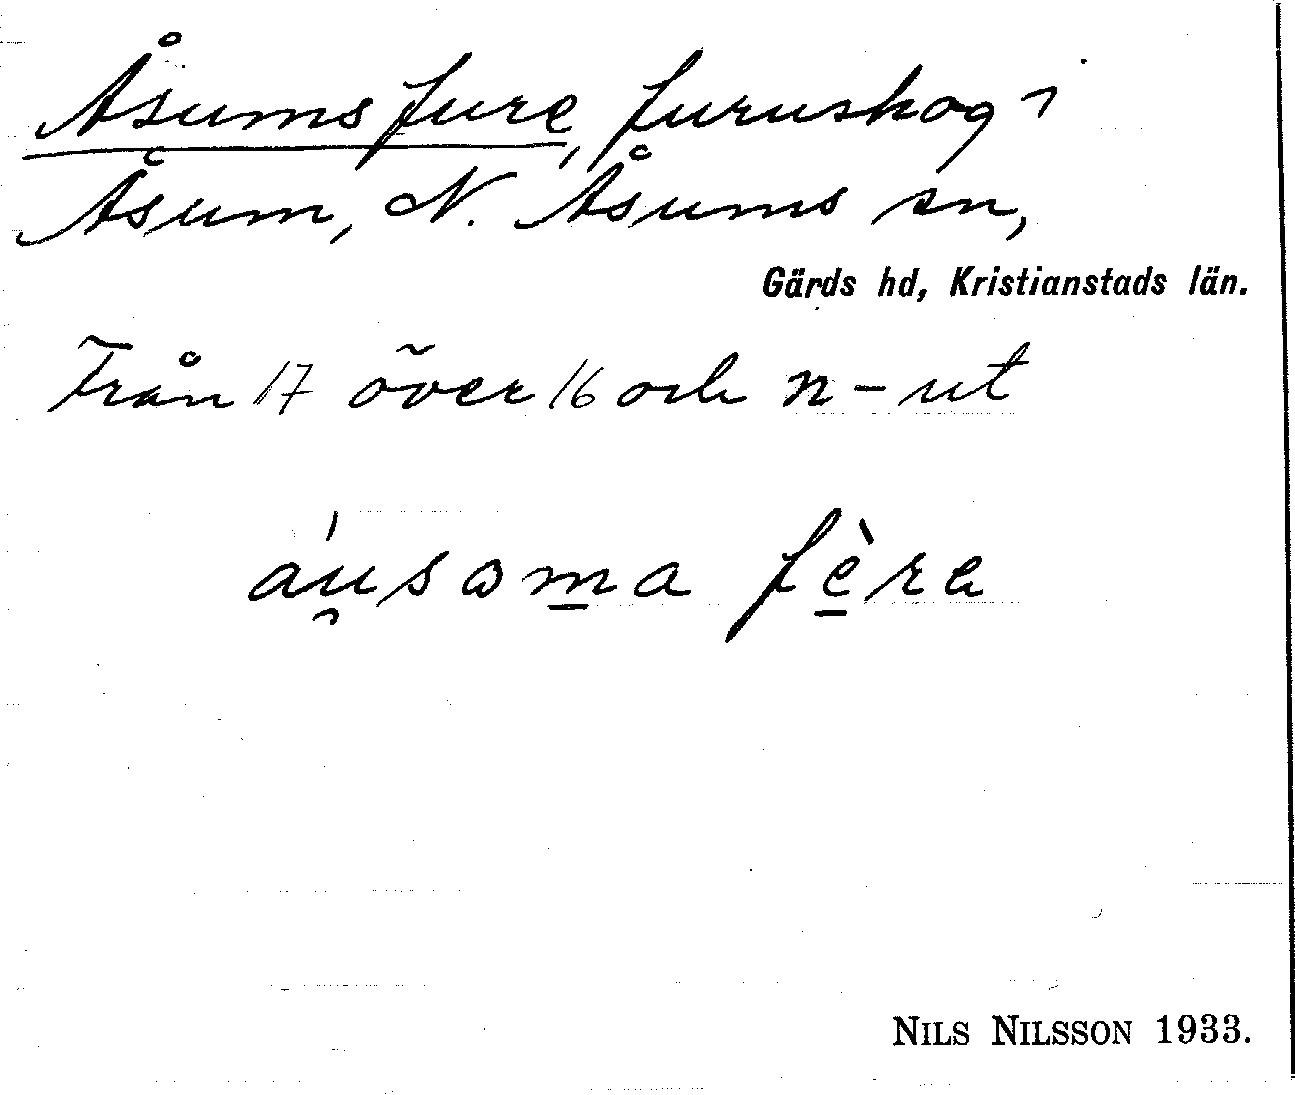 Åsums fure, furuskog i
Åsum, N. Åsums sn,
Gärds hd, Kristianstads län.
Från 17 över 16 och n-ut
áu̯sama fère
NILS NILSSON 1933.